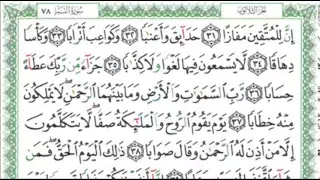 جزء الثلاثون ٧٨ سورة النبإ
إِنَّ لِلْمُتَّقِينَ مَفَازًا ٣١ حَدَآئِقَ وَأَعْنَٰبًا ٣٢ وَكَوَاعِبَ أَتْرَابًا ٣٣ وَكَأْسًا
دِهَاقًا ٣٤ لَّا يَسْمَعُونَ فِيهَا لَغْوًا وَلَا كِذَّٰبًا ٣٥ جَزَآءً مِّن رَّبِّكَ عَطَآءً
حِسَابًا ٣٦ رَّبِّ ٱلسَّمَٰوَٰتِ وَٱلْأَرْضِ وَمَا بَيْنَهُمَا ٱلرَّحْمَٰنِ لَا يَمْلِكُونَ
مِنْهُ خِطَابًا ٣٧ يَوْمَ يَقُومُ ٱلرُّوحُ وَٱلْمَلَٰٓئِكَةُ صَفًّا لَّا يَتَكَلَّمُونَ
إِلَّا مَنْ أَذِنَ لَهُ ٱلرَّحْمَٰنُ وَقَالَ صَوَابًا ٣٨ ذَٰلِكَ ٱلْيَوْمُ ٱلْحَقُّ فَمَن